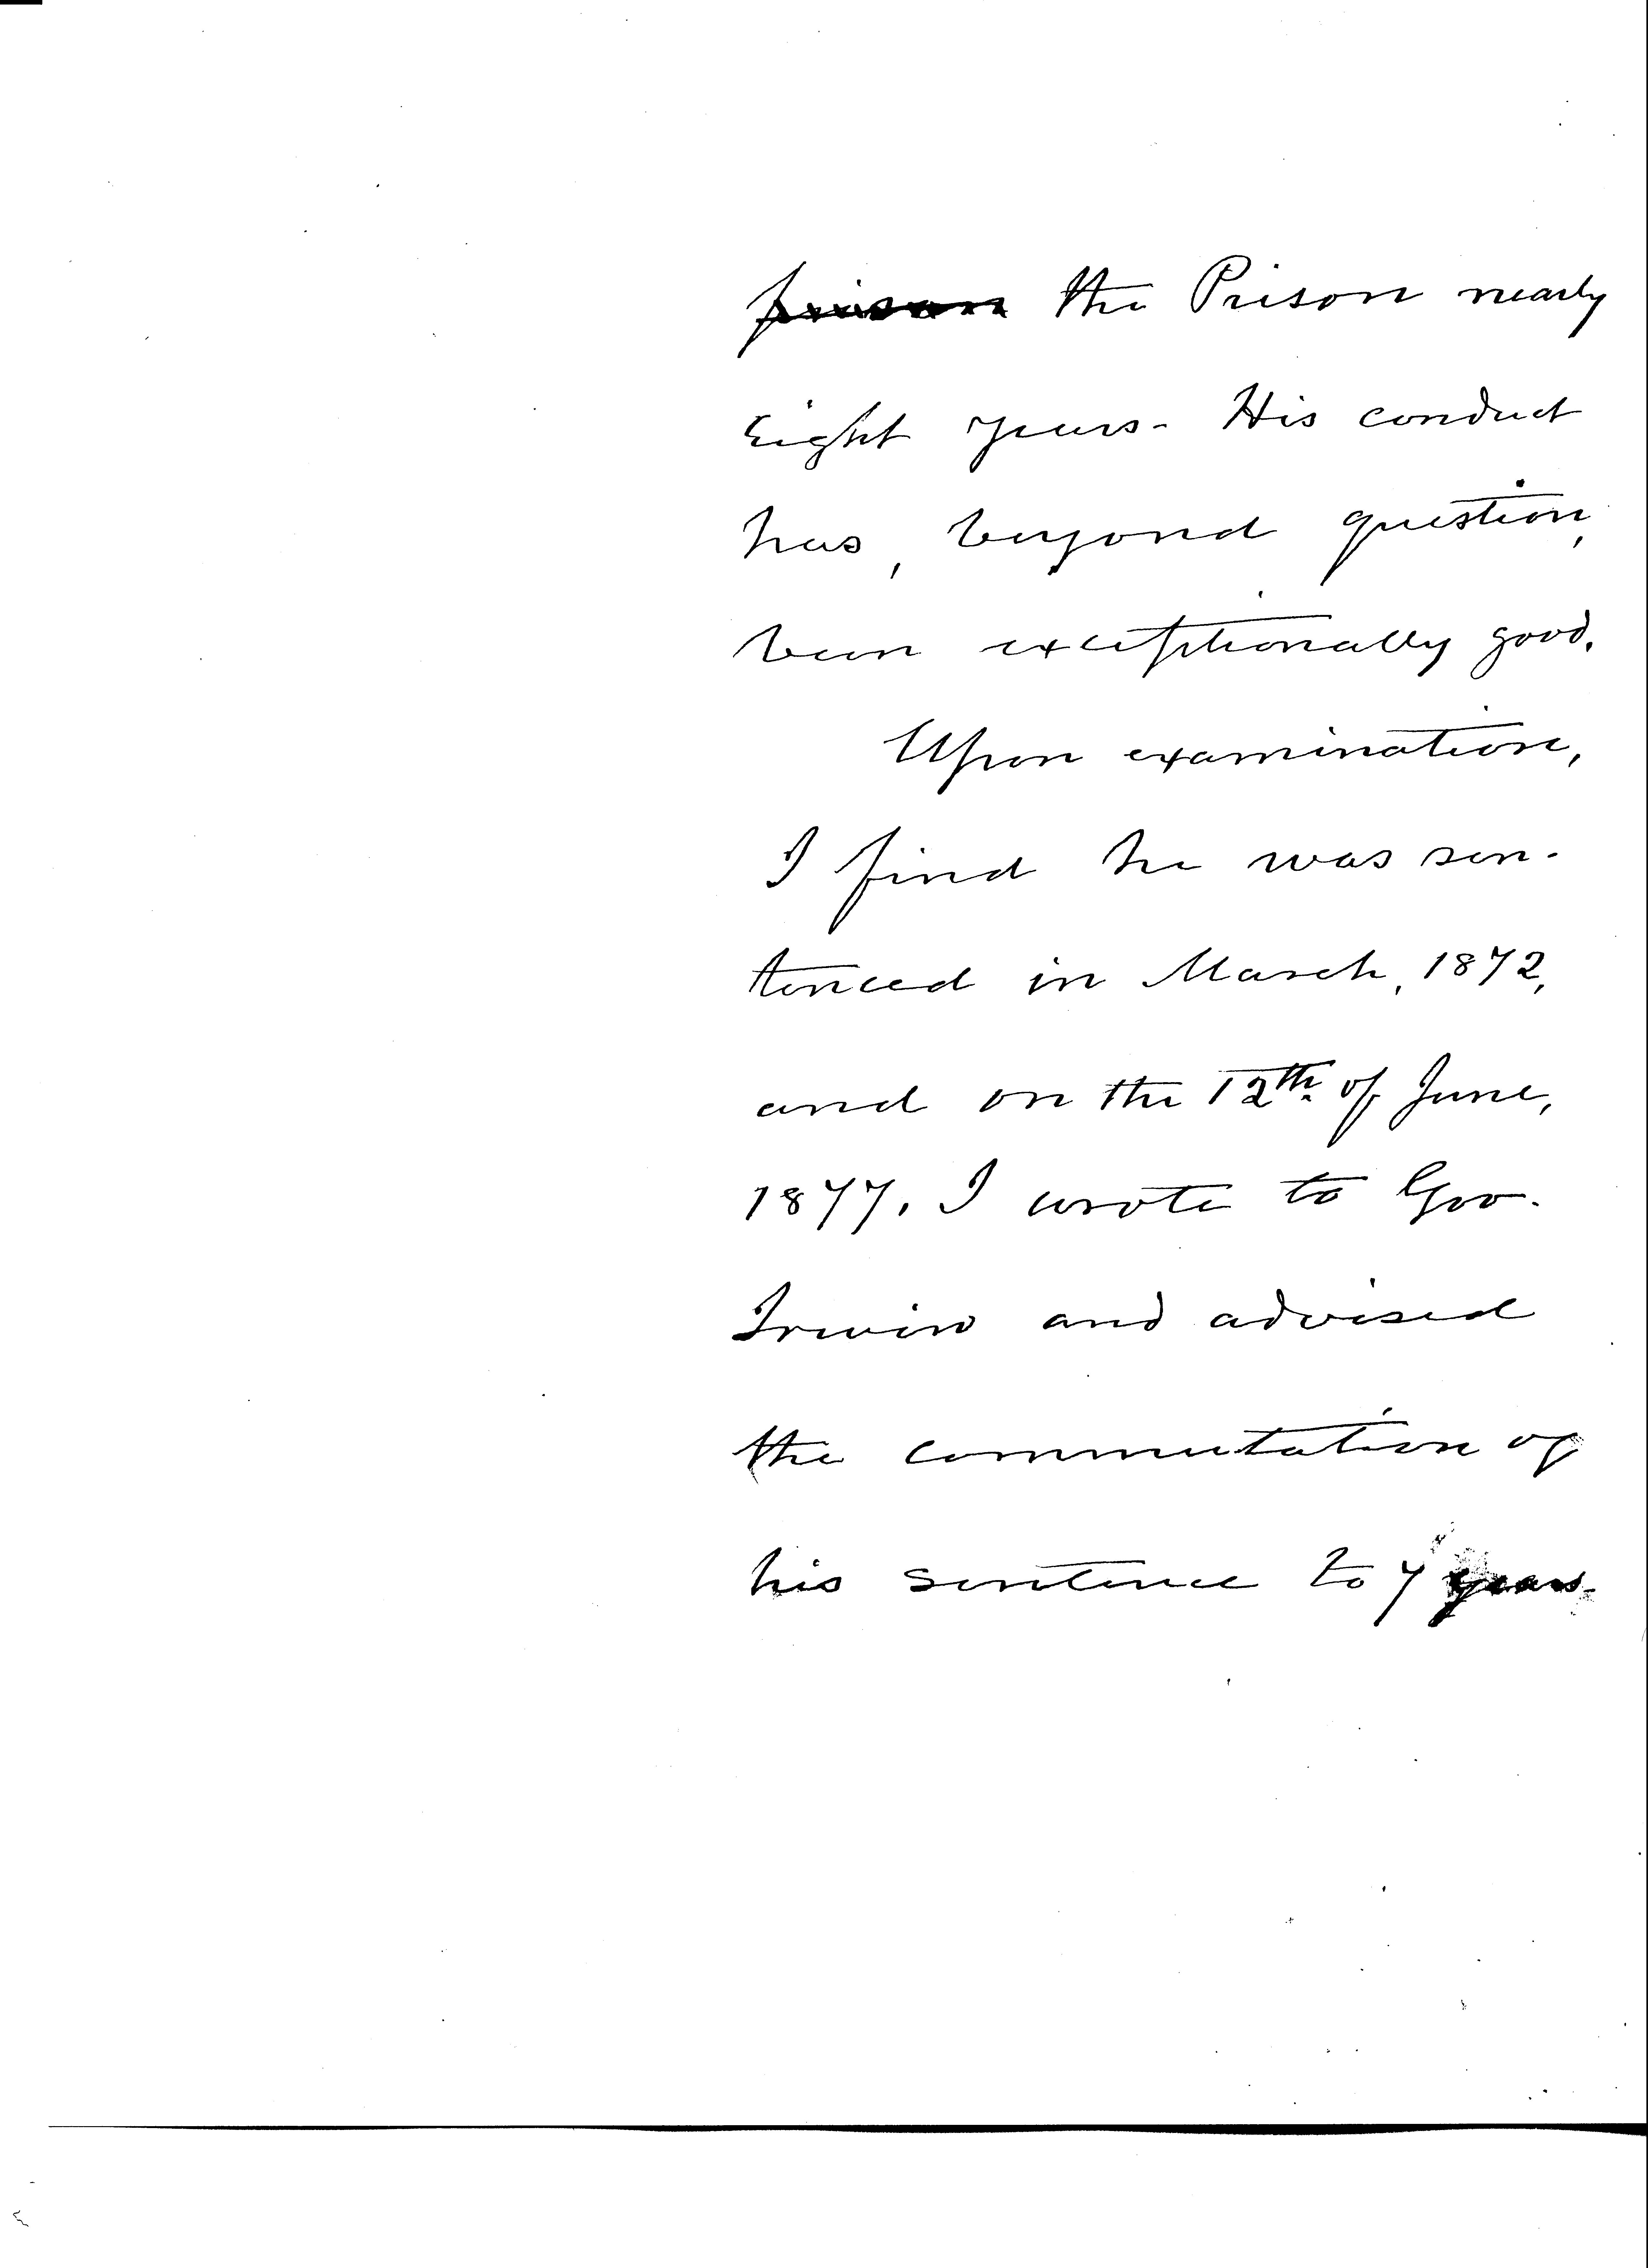 prison the Prison nearly
Eight years. His conduct
has, beyond question,
been exceptionally good.
Upon examination,
I find he was sen-
tenced in March, 1872,
and on the 12th. of June,
1877. I wrote to Gov.
Irwin and advised
the commutation of
his sentence to 7 years.